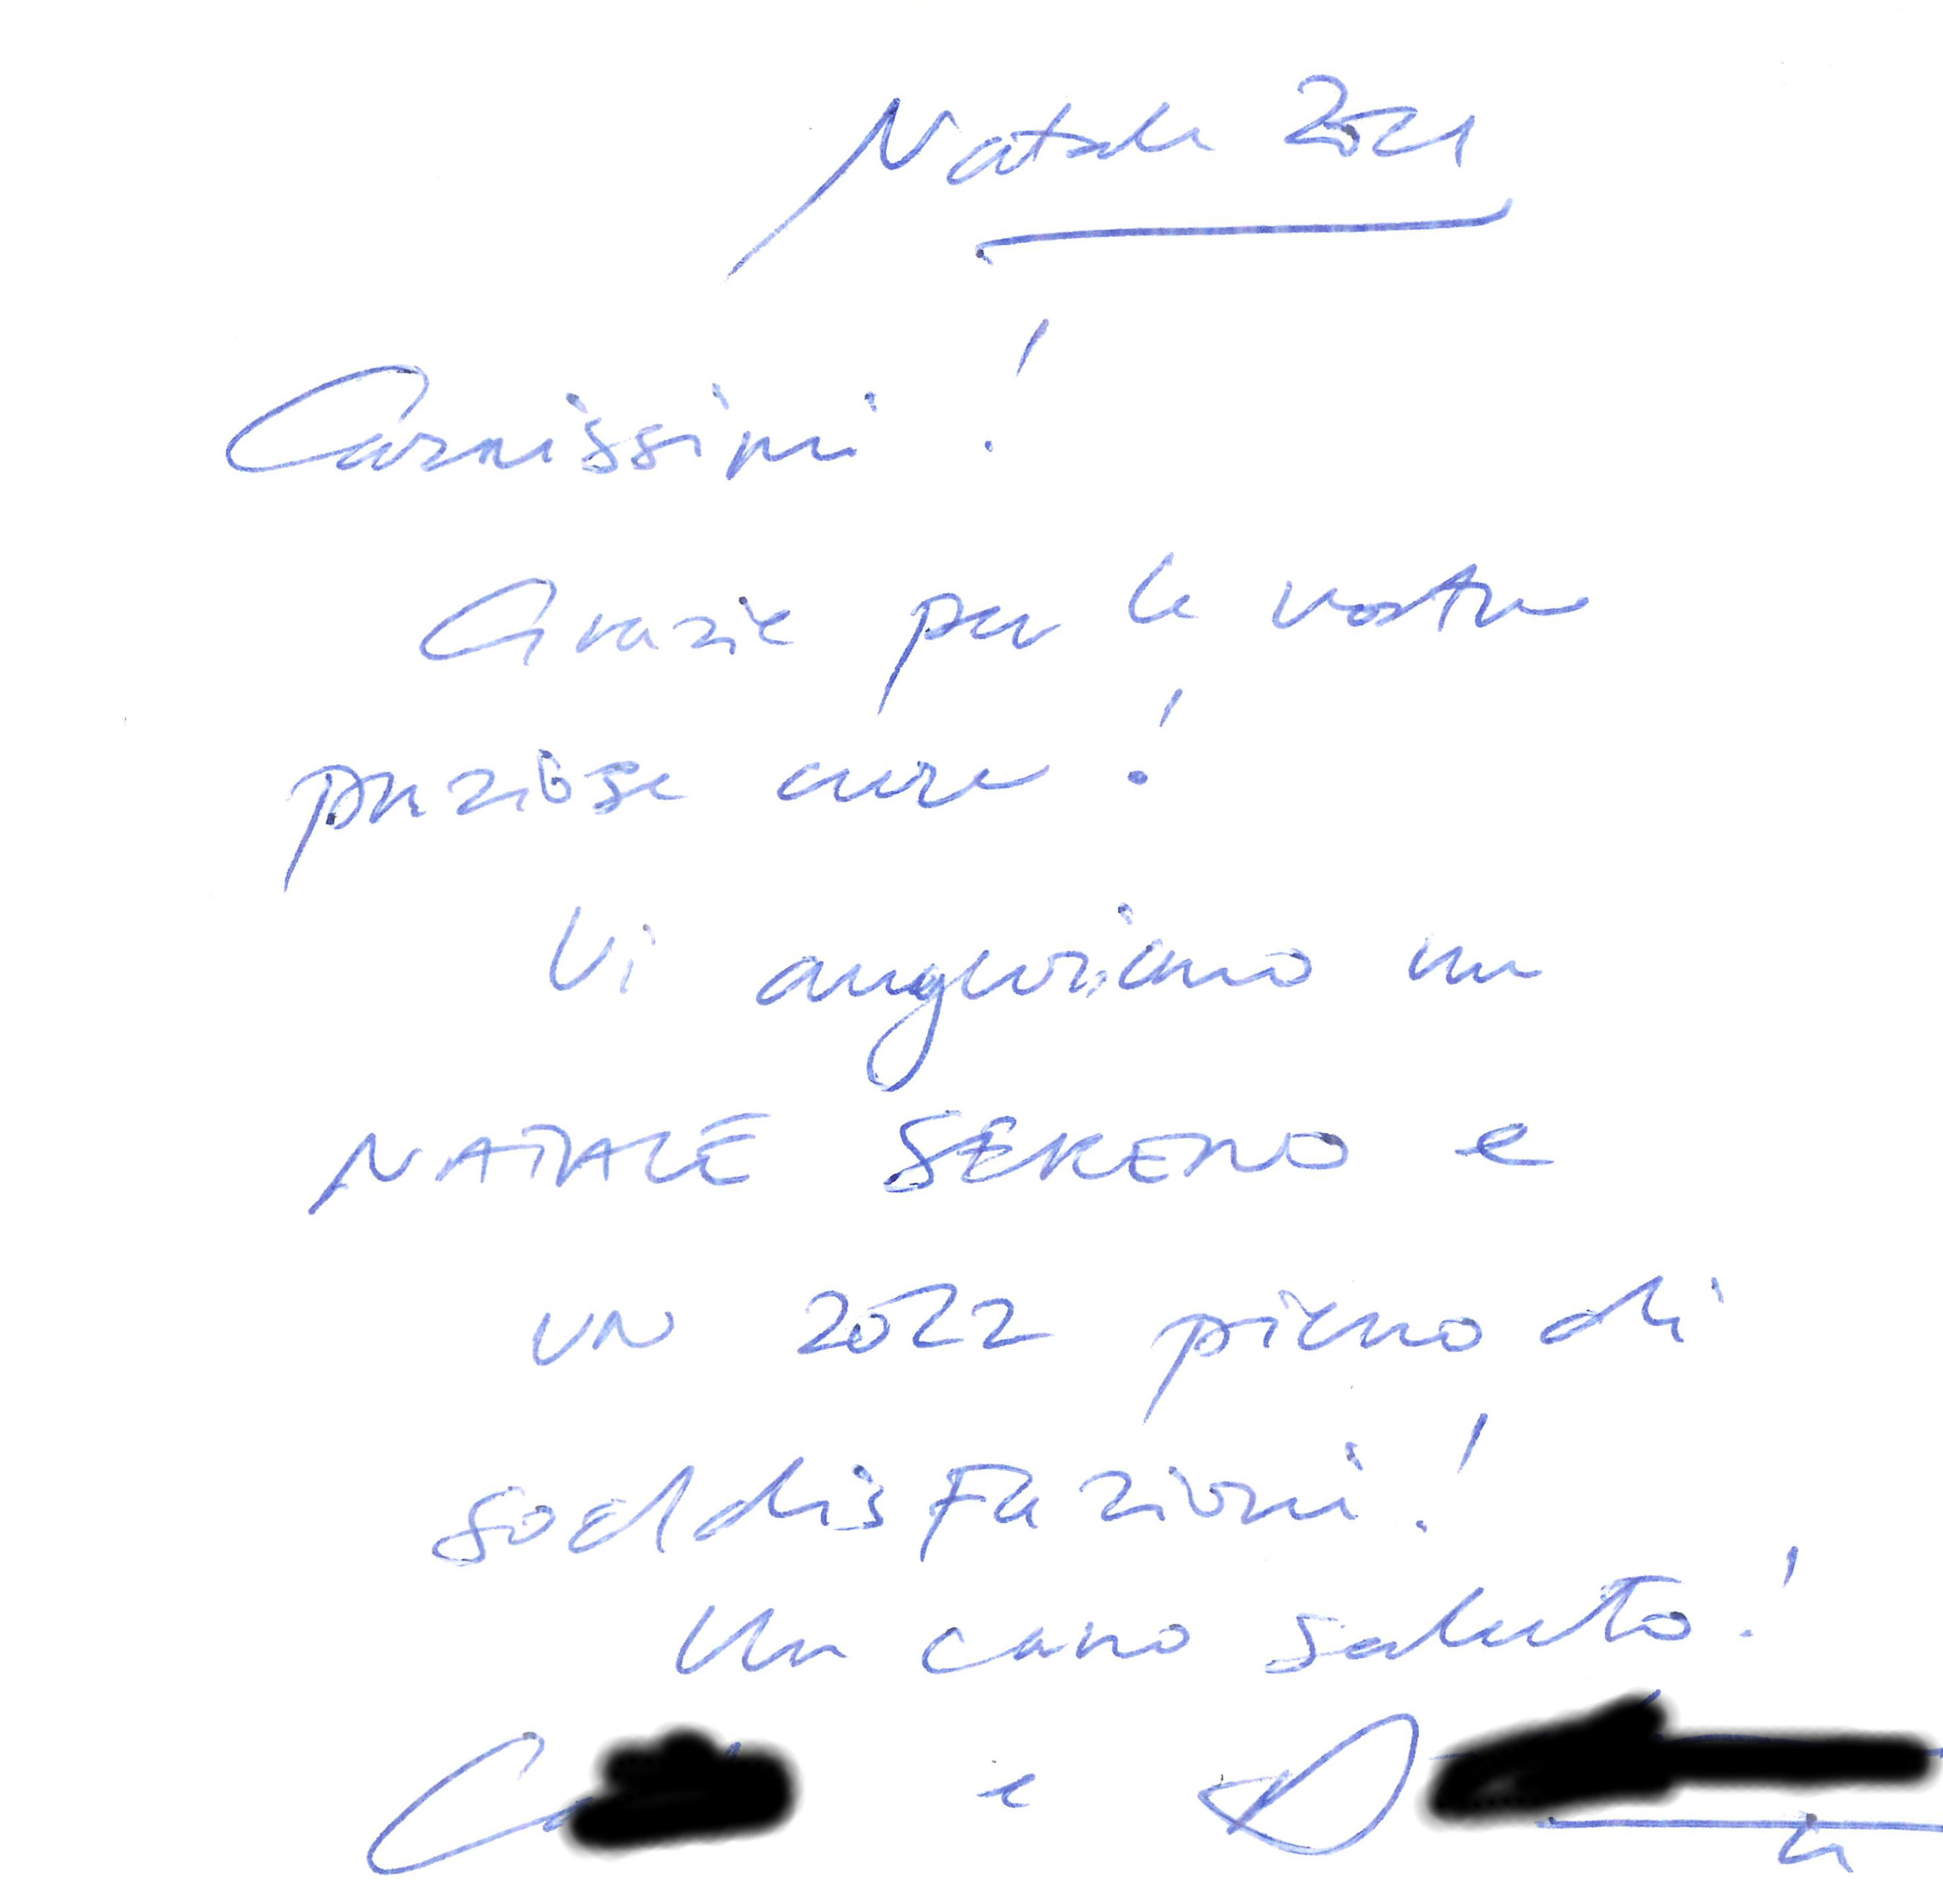 Natale 2021
Carissimi!
Grazie per le vostre
preziose cure!
Vi auguriamo un
NATALE SERENO e
UN 2022 pieno di
soddisfazioni!
Un caro saluto!
e